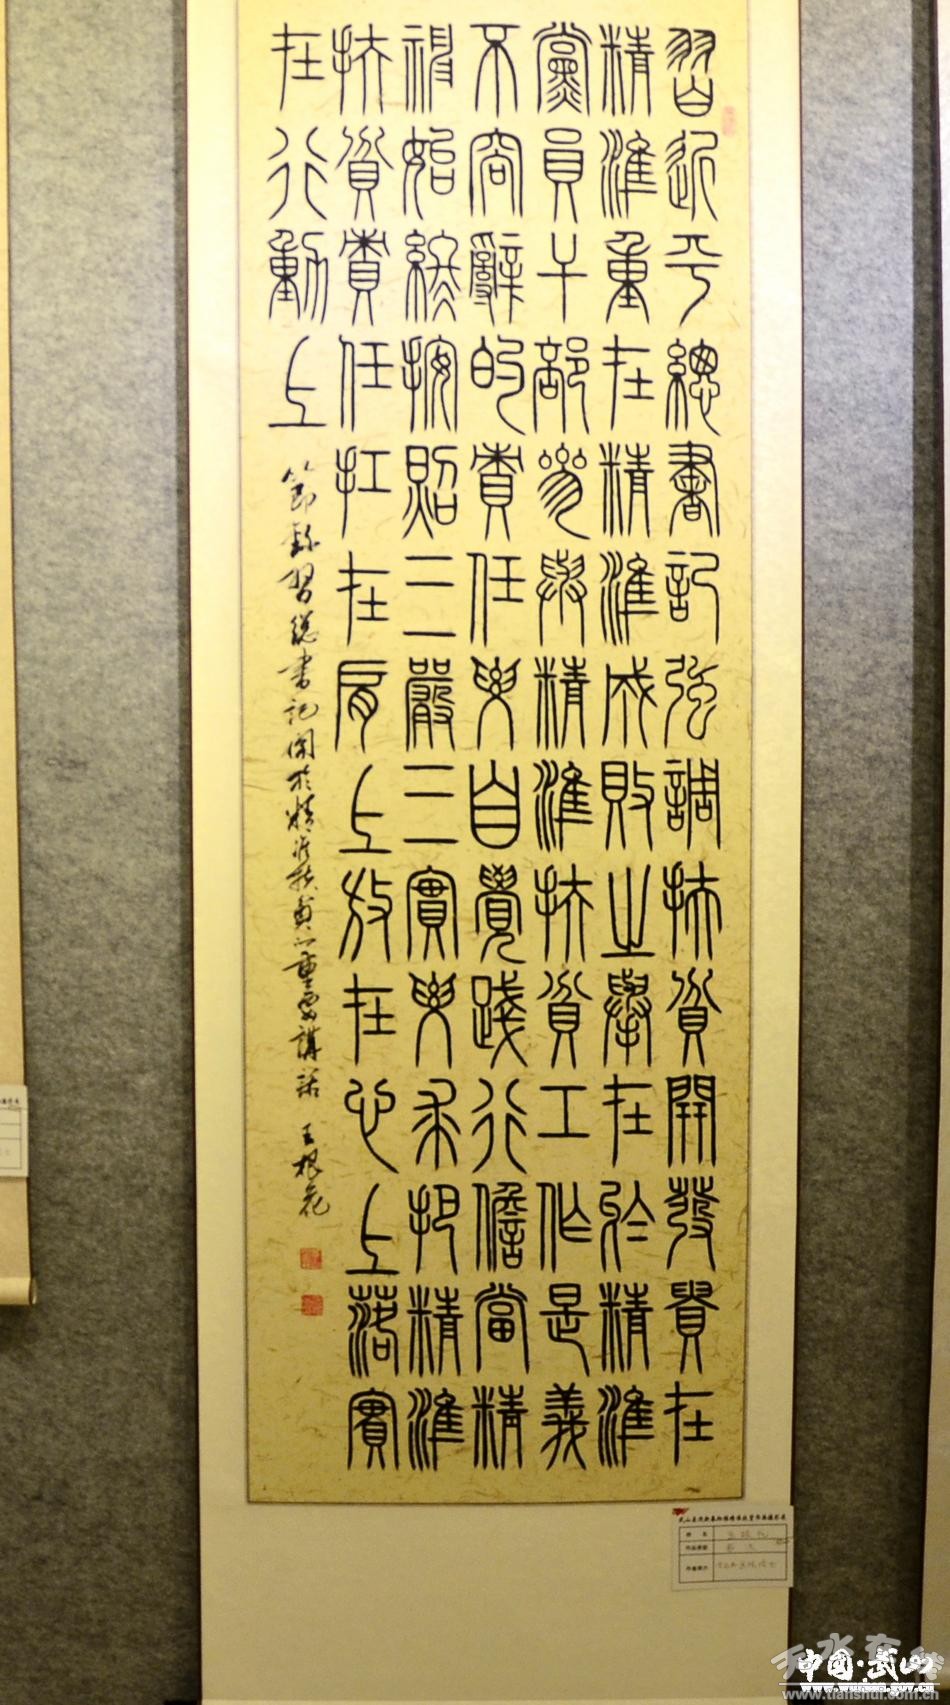 習近平總書記強調扶貧開發貴在
精準重在精準成敗之舉在於精準
黨員干部參與精準扶貧工作是義
不容辭的責任要自覺踐行擔當精
神始終按照三嚴三實要求把精準
扶貧責任扛在肩上放在心上落實
在行動上
節錄習總書記關於精准扶貧的重要講話 王根花
姓名
作品类别 书法
天水在线
www.tianshui.com.cn
中國·武山
www.wushan.gov.cn